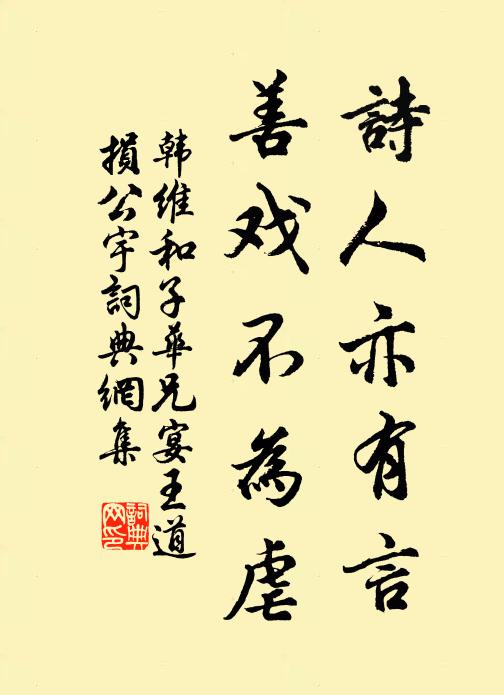 詩人亦有言
善戏不為虐
韩维和子華兄宴王道
損公宇詞典網集
詞典
网印